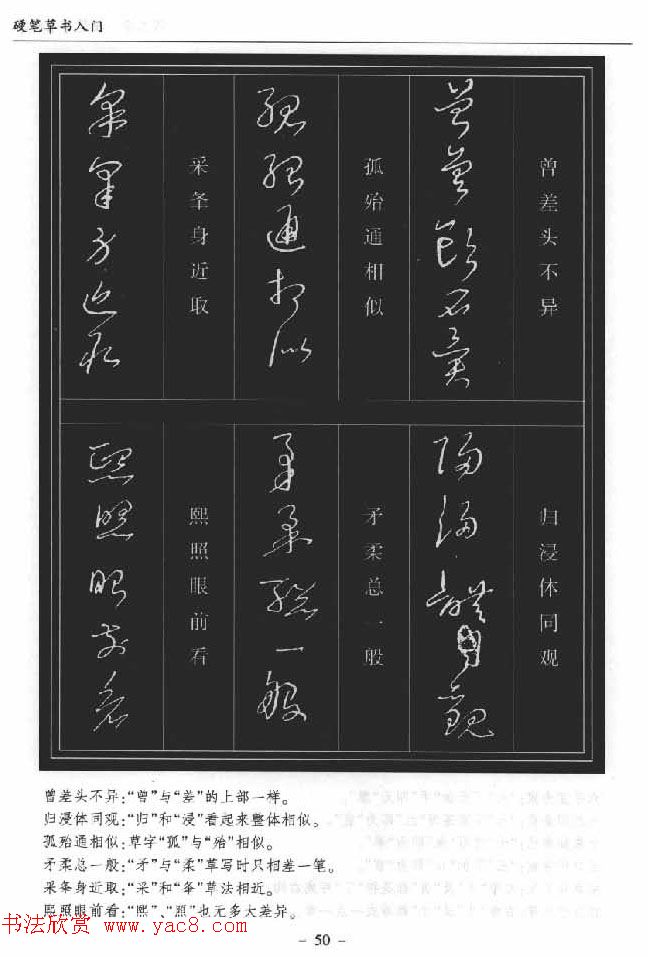 硬笔草书入门
曾差头不异
归浸休同观
孤殆通相似
矛柔总一般
采条身近取
熙照眼前看
曾差头不异:“曾”与“差”的上部一样。
归浸体同观:“归”和“浸”看起来整体相似。
孤殆通相似:草字“孤”与“殆”相似。
矛柔总一般:“矛”与“柔”草写时只相差一笔。
采条身近取:“采”和“条”草法相近。
熙照眼前看:“熙”、“照”也无多大差异。
书法欣赏 www.yac8.com
- 50 -